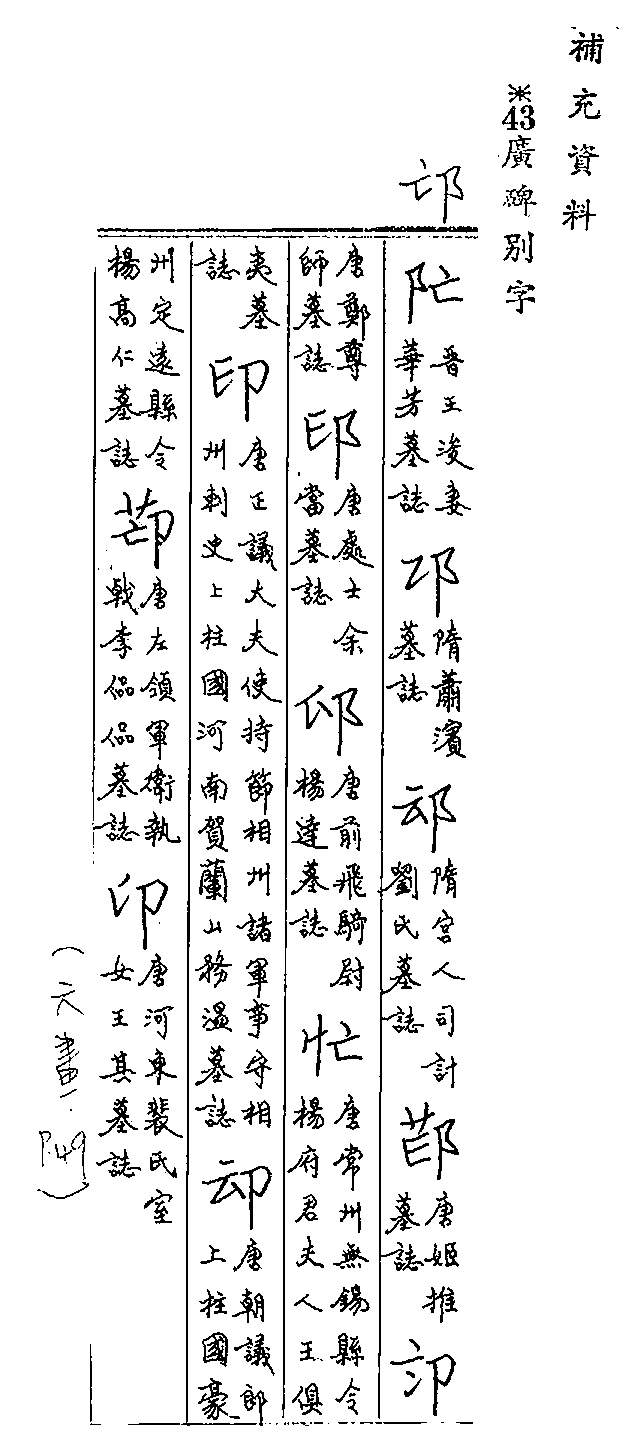 補充資料
※43廣碑別字
邙
𨸏亡 晉王浚妻華芳墓誌 邔 隋蕭濱墓誌 䢵 隋宮人司計劉氏墓誌 唐姬推墓誌
唐鄭尊師墓誌 唐處士余當墓誌 唐前飛騎尉楊達墓誌 忙 唐常州無錫縣令楊府君夫人王俱
夷墓誌 印 唐正議大夫使持節相州諸軍事守相州刺史上柱國河南賀蘭山務溫墓誌 唐朝議郎上柱國豪
州定遠縣令楊高仁墓誌 茚 唐左領軍衛執戟李㗊㗊墓誌 卬 唐河東裴氏室女王其墓誌
(六畫.P.49)